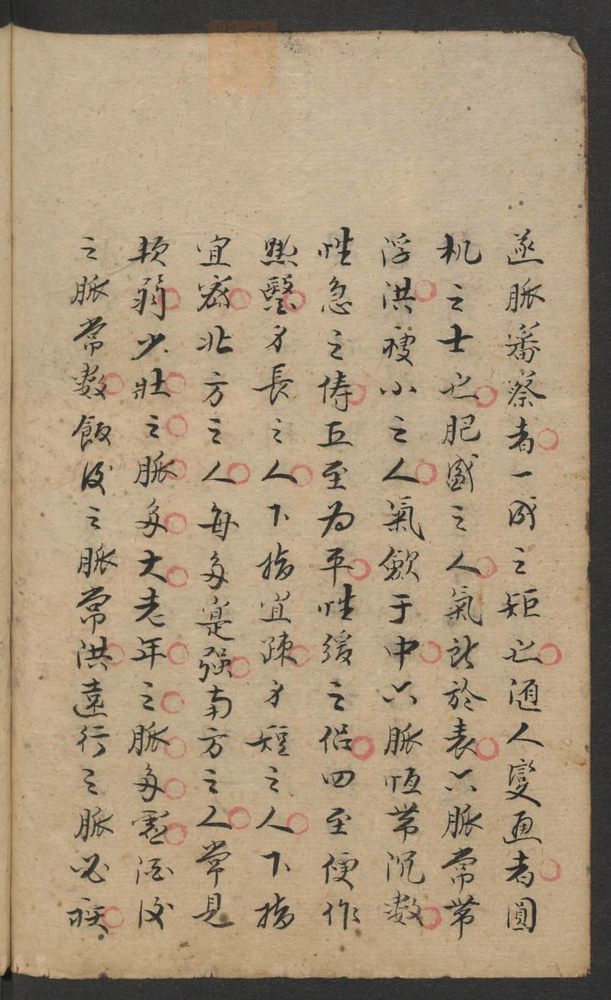 逐脈審察者一成之矩也随人變通者圓
机之士也肥盛之人氣訧於表六脈常带
浮洪瘦小之人氣歛于中六脈恒带沉数
性急之俦五至为平性缓之侣四至便作
熱醫身長之人下指宜踈身短之人下指
宜密北方之人每多寔强南方之人常見
软弱少壯之脈多大老年之脈多虚酒後
之脈常数飯後之脈常洪遠行之脈必疾